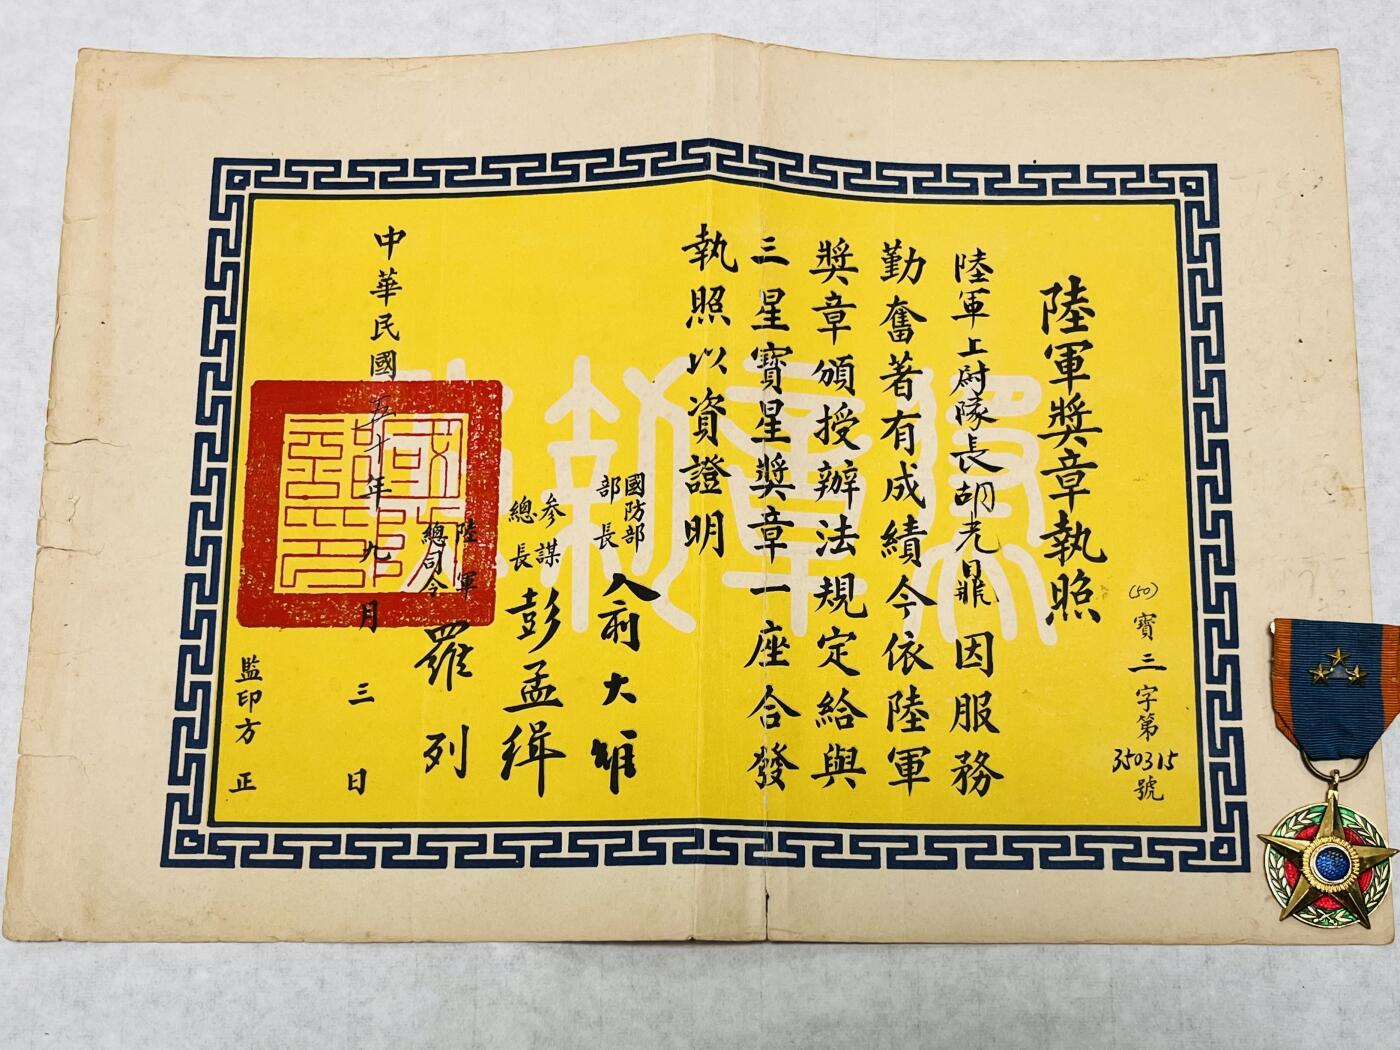 陸軍獎章執照
(50)寶三字第350315號
陸軍上尉隊長胡光 因服務
勤奮著有成績今依陸軍
獎章頒授辦法規定給與
三星寶星獎章一座合發
執照以資證明
國防部
部長
俞大維
參謀
總長
彭孟緝
陸軍
總司令
羅列
中華民國五十年九月三日
監印方正